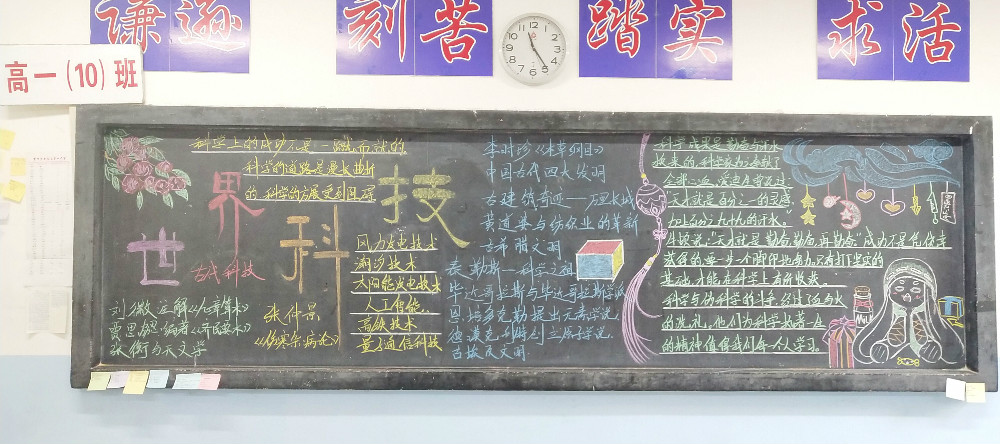 谦逊
刻苦
踏实
求活
高一(10)班
科学上的成功不是一蹴而就的
科学的道路是漫长曲折
的 科学的发展受到阻碍
世界科技
古代科技
刘徽 注解《九章算术》
贾思勰 编著《齐民要术》
张衡与天文学
张仲景
《伤寒杂病论》
风力发电技术
潮汐技术
太阳能发电技术
人工智能
高铁技术
量子通信科技
李时珍《本草纲目》
中国古代四大发明
古建筑奇迹——万里长城
黄道婆与纺织业的革新
古希腊文明
泰勒斯—科学之祖
毕达哥拉斯与毕达哥拉斯学派
恩培多克勒提出元素学说
德谟克利特创立原子学说
古埃及文明
科学成果是勤奋与汗水
换来的 科学家为
天才就是百分之一的灵感
加上百分之九十九的汗水
说:“天才就是勤奋勤奋再勤奋”成功不是凭侥幸
获得的 每一步一个脚印 只有打下坚实的
基础 才能在科学上有所收获
科学与伪科学的斗争 经过了血与火
的洗礼,他们为科学献身
的精神值得我们每一个人学习。
MILK